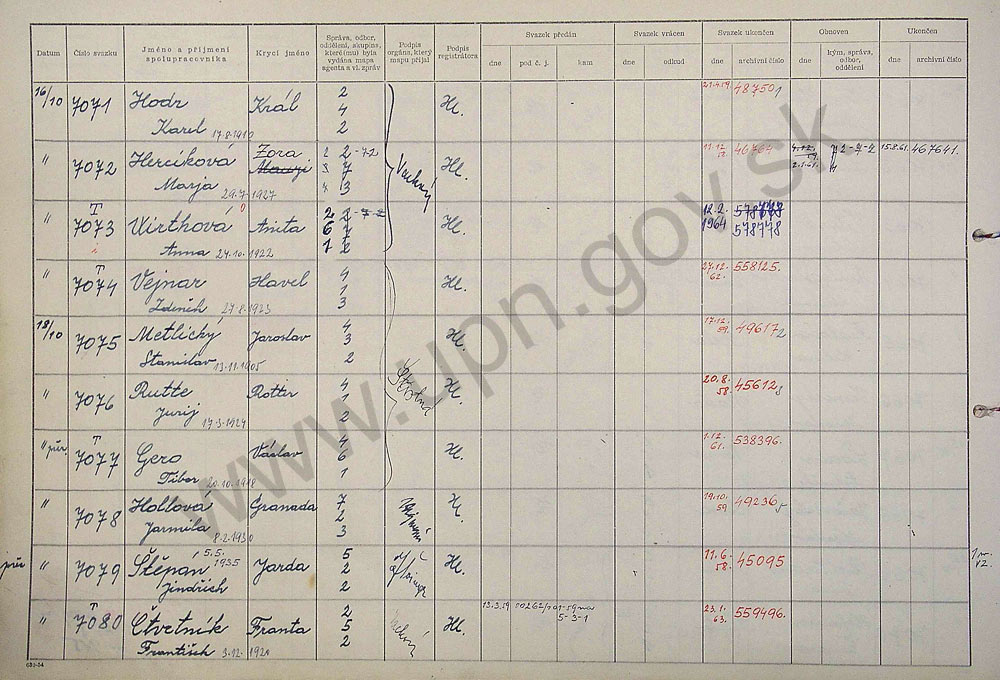 Datum
Číslo svazku
Jméno a příjmení
spolupracovníka
Krycí jméno
Správa, odbor,
oddělení, skupina,
které(mu) byla
vydána mapa
agenta a vl. zpráv
Podpis
orgána, který
mapu přijal
Podpis
registrátora
Svazek předán
dne
pod č. j.
kam
Svazek vrácen
dne
odkud
Svazek ukončen
dne
archivní číslo
Obnoven
dne
kým, správa,
odbor,
oddělení
Ukončen
dne
archivní číslo
16/10 7071 Hodr Král 2 Hl. 487501
4
Karel 17.8.1910 2
" 7072 Hercíková Zora 2 2-72 Hl. 11.12. 46764 2-7-2 15.8.61. 467641.
3 7
Marja 29.7.1927 4 3
Vachný
T
" 7073 Wirthová Anita 2 2-7-2 Hl. 12.2. 578778
6 1964 578778
Anna 24.10.1922 1 2
T
" 7074 Vejnar Havel 4 Hl. 27.12. 558125.
1 62.
Zdeněk 27.8.1923 3
18/10 7075 Metlický Jaroslav 4 Hl. 17.12. 496172
3 59.
Stanislav 13.11.1905 2
" 7076 Rutte Rotter 4 Hl. 20.8. 456128
1 58.
Jurij 17.3.1924 2
T
" pův 7077 Gero Václav 4 Hl. 1.12. 538396.
6 61.
Tibor 20.10.1918 1
" 7078 Hollová Granada 7 Hl. 19.10. 492365
2 59
Jarmila 8.2.1930 3
pův " 7079 Štěpán 5.5. 1935 Jarda 5 Hl. 11.6. 45095
2 58.
Jindřich 2
T
" 7080 Čtvetník Franta 2 Hl. 13.3.59 23.1. 559496.
5 5-3-1 63.
František 3.12.1921 2
633-54
www.upn.gov.sk